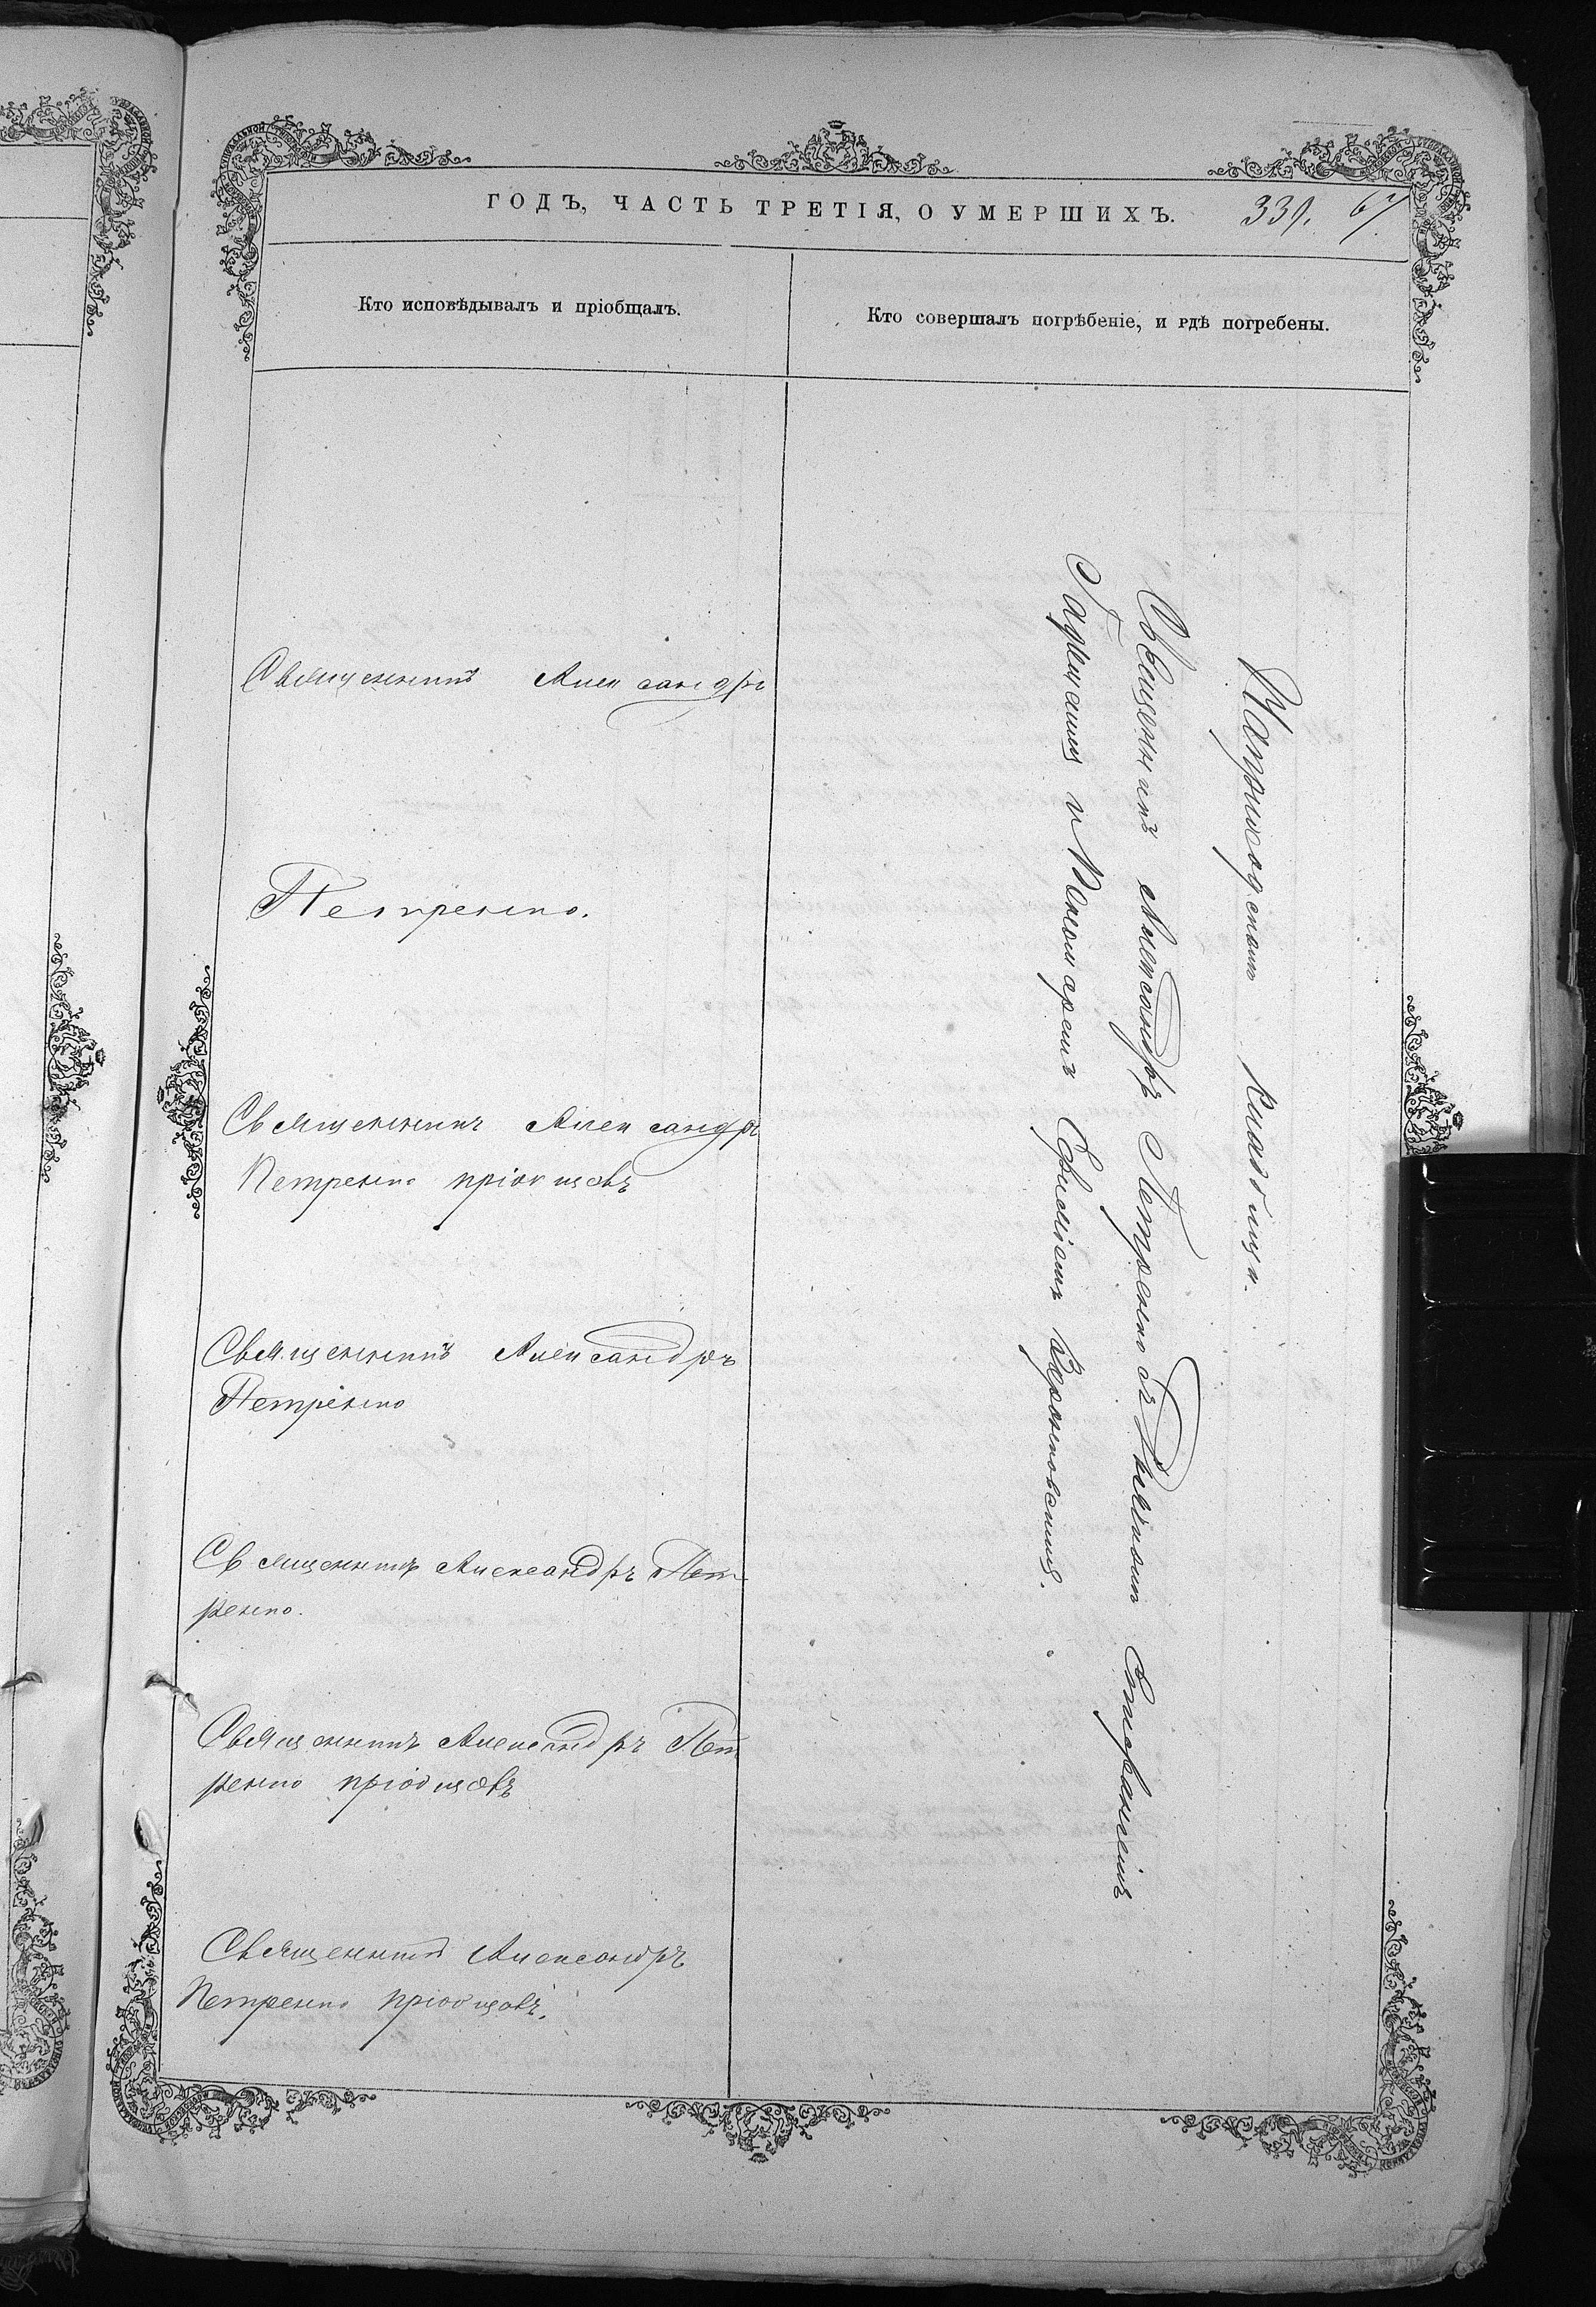 ГОДЪ, ЧАСТЬ ТРЕТІЯ, О УМЕРШИХЪ.
339. 67.
Кто исповѣдывалъ и пріобщалъ.
Кто совершалъ погрѣбеніе, и гдѣ погребены.
Священникъ Александръ
Петренко.
Священникъ Александръ
Петренко пріобщавъ
Священникъ Александръ
Петренко
Священникъ Александръ Пет-
ренко.
Священникъ Александръ Пет
ренко пріобщавъ
Священникъ Александръ
Петренко пріобщавъ.
На приходскомъ кладбищѣ.
Священникъ Александръ Петренко съ Діакономъ Стефаномъ
и Псаломщикомъ